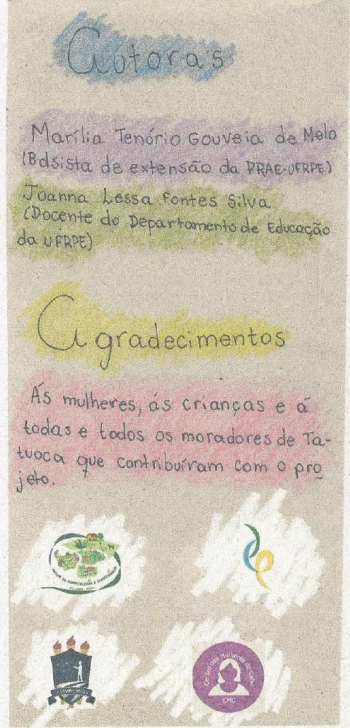 Autoras
Marília Tenório Gouveia de Melo
(Bolsista de extensão da PRAE-UFRPE)
Joanna Lessa Fontes Silva
(Docente do Departamento de Educação
da UFRPE)
Agradecimentos
Ás mulheres, ás crianças e á
todas e todos os moradores de Ta-
tuoca que contribuíram com o pro
jeto.
Centro das Mulheres do Cabo
CMC